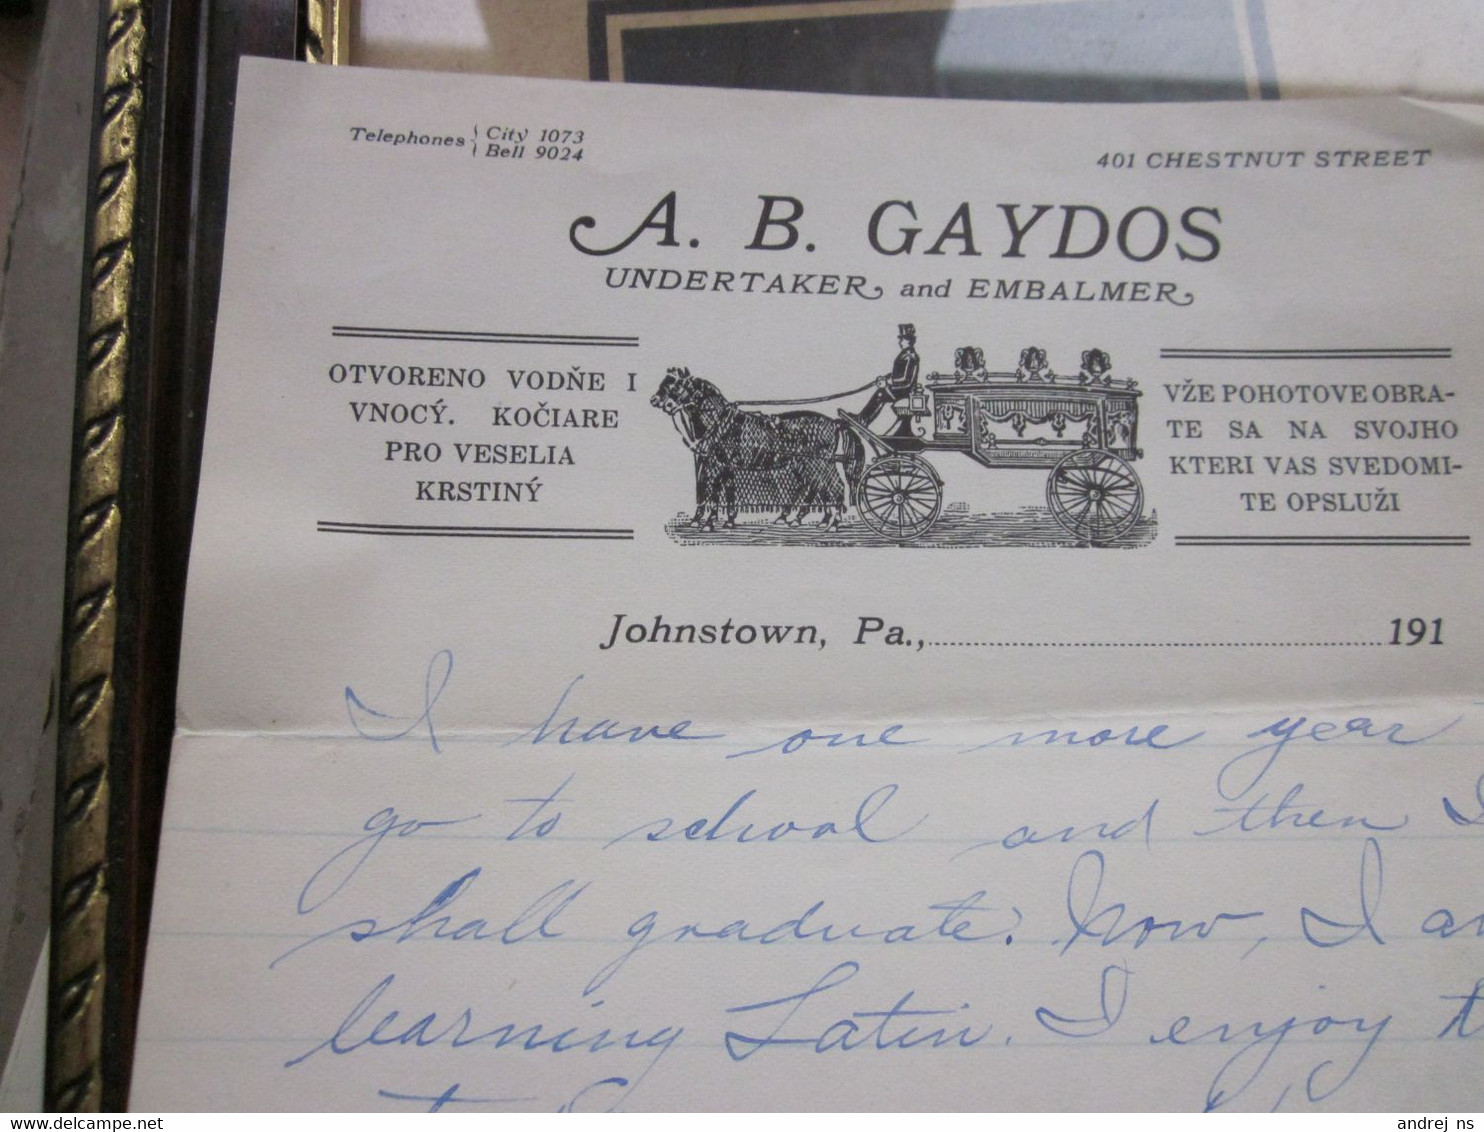 Telephones { City 1073
Bell 9024
401 CHESTNUT STREET
A. B. GAYDOS
UNDERTAKER and EMBALMER
OTVORENO VODŇE I
VNOCÝ. KOČIARE
PRO VESELIA
KRSTINÝ
VŽE POHOTOVE OBRA-
TE SA NA SVOJHO
KTERI VAS SVEDOMI-
TE OPSLUŽI
Johnstown, Pa., 191
I have one more year
go to school and then I
shall graduate. Now, I a
learning Latin. I enjoy
andrej ns